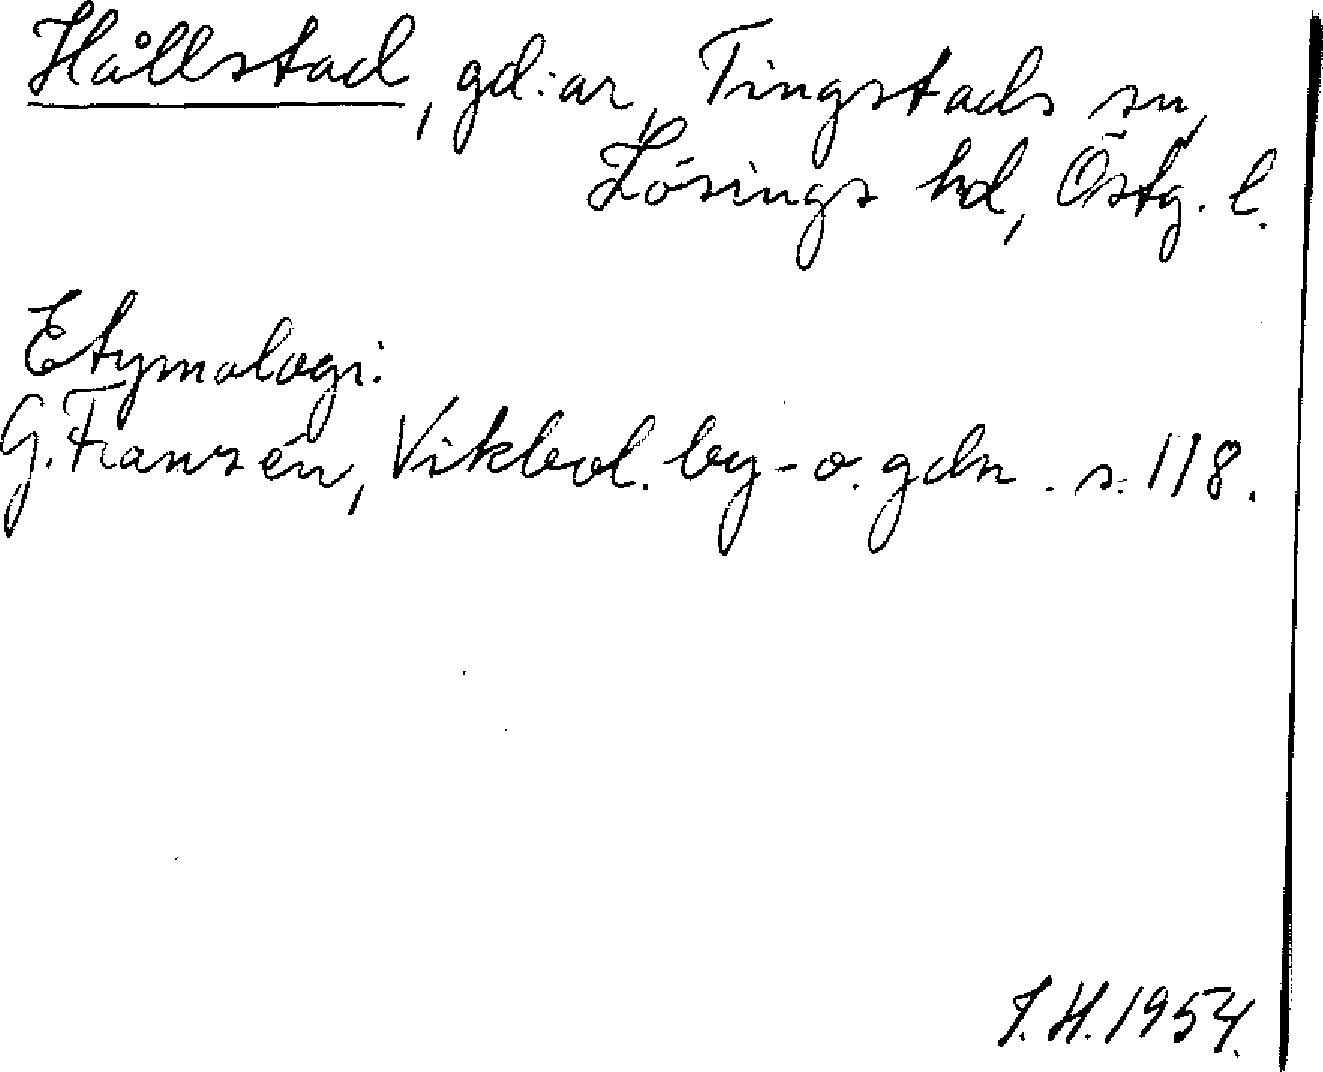 Hållstad, gd:ar, Tingstads sn,
Lösings hd, Östg. l.
Etymologi:
G. Franzén, Vikbol. by- o. gdn. s. 118.
I.H. 1954.